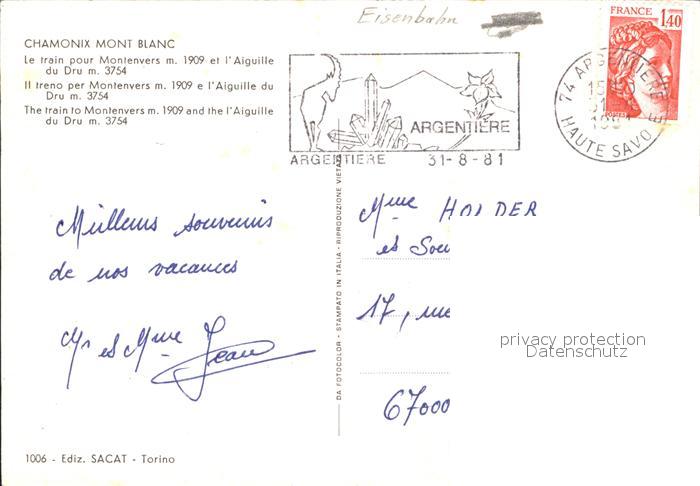 Eisenbahn
FRANCE
1,40
CHAMONIX MONT BLANC
Le train pour Montenvers m. 1909 et l'Aiguille
du Dru m. 3754
Il treno per Montenvers m. 1909 e l'Aiguille
du Dru m. 3754
The train to Montenvers m. 1909 and the l'Aiguille
du Dru m. 3754
ARGENTIERE
ARGENTIERE 31-8-81
74 ARGENTIERE
HAUTE SAVOIE
DA FOTOCOLOR - STAMPATO IN ITALIA - RIPRODUZIONE VIETATA
Meilleurs souvenirs
de nos vacances
Mr et Mme Jean
Mme HOLDER
et
17, rue
67000
privacy protection
Datenschutz
1006 - Ediz. SACAT - Torino